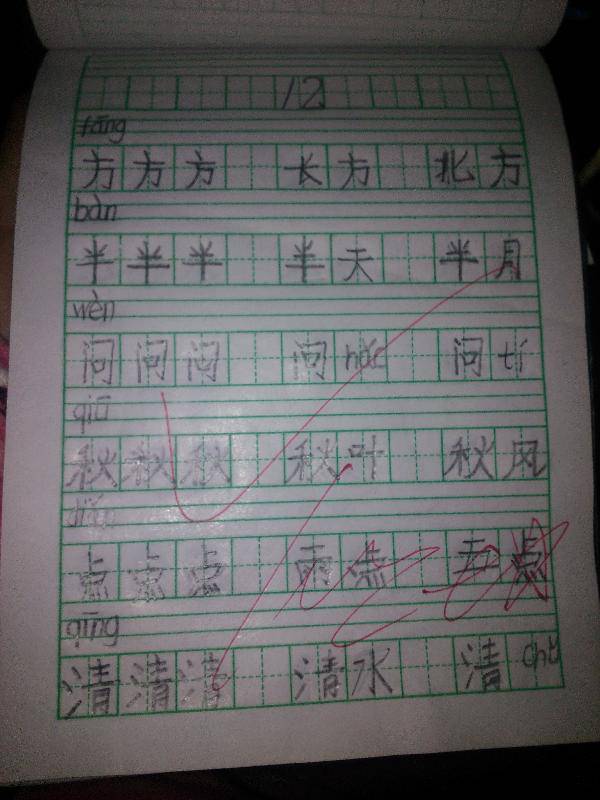 12
fāng
方方方 长方 北方
bàn
半半半 半天 半月
wèn
问问问 问hóc 问tí
qiū
秋秋秋 秋叶 秋风
diǎn
点点点 雨点 五点
qīng
清清清 清水 清chǔ